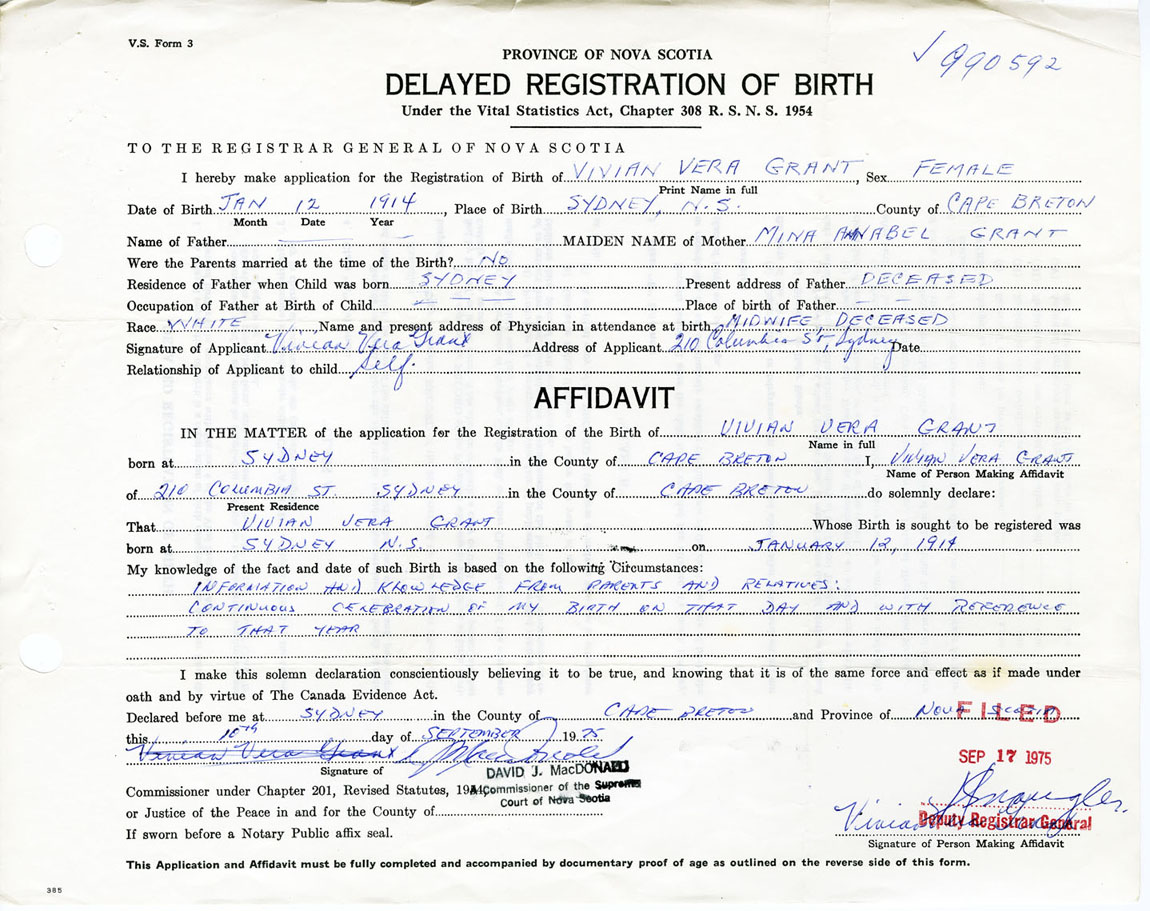 V.S. Form 3
√ 990592
PROVINCE OF NOVA SCOTIA
DELAYED REGISTRATION OF BIRTH
Under the Vital Statistics Act, Chapter 308 R. S. N. S. 1954
TO THE REGISTRAR GENERAL OF NOVA SCOTIA
I hereby make application for the Registration of Birth of VIVIAN VERA GRANT, Sex FEMALE
Print Name in full
Date of Birth JAN 12 1914, Place of Birth SYDNEY, N.S. County of CAPE BRETON
Month Date Year
Name of Father MAIDEN NAME of Mother MINA ANNABEL GRANT
Were the Parents married at the time of the Birth? NO
Residence of Father when Child was born SYDNEY Present address of Father DECEASED
Occupation of Father at Birth of Child — — — Place of birth of Father — —
Race WHITE, Name and present address of Physician in attendance at birth MIDWIFE, DECEASED
Signature of Applicant Vivian Vera Grant Address of Applicant 210 Columbia St, Sydney Date
Relationship of Applicant to child Self.
AFFIDAVIT
IN THE MATTER of the application for the Registration of the Birth of VIVIAN VERA GRANT
Name in full
born at SYDNEY in the County of CAPE BRETON I, VIVIAN VERA GRANT
Name of Person Making Affidavit
of 210 COLUMBIA ST. SYDNEY in the County of CAPE BRETON do solemnly declare:
Present Residence
That VIVIAN VERA GRANT Whose Birth is sought to be registered was
born at SYDNEY N.S. on JANUARY 12, 1914
My knowledge of the fact and date of such Birth is based on the following Circumstances:
INFORMATION AND KNOWLEDGE FROM PARENTS AND RELATIVES:
CONTINUOUS CELEBRATION OF MY BIRTH ON THAT DAY AND WITH REFERENCE
TO THAT YEAR
I make this solemn declaration conscientiously believing it to be true, and knowing that it is of the same force and effect as if made under
oath and by virtue of The Canada Evidence Act.
Declared before me at SYDNEY in the County of CAPE BRETON and Province of NOVA SCOTIA
FILED
this 10th day of SEPTEMBER 1975
SEP 17 1975
Vivian Vera Grant
Signature of
DAVID J. MacDONALD
Commissioner under Chapter 201, Revised Statutes, 19
A Commissioner of the Supreme
Court of Nova Scotia
or Justice of the Peace in and for the County of
Vivian
Deputy Registrar General
If sworn before a Notary Public affix seal.
Signature of Person Making Affidavit
This Application and Affidavit must be fully completed and accompanied by documentary proof of age as outlined on the reverse side of this form.
385